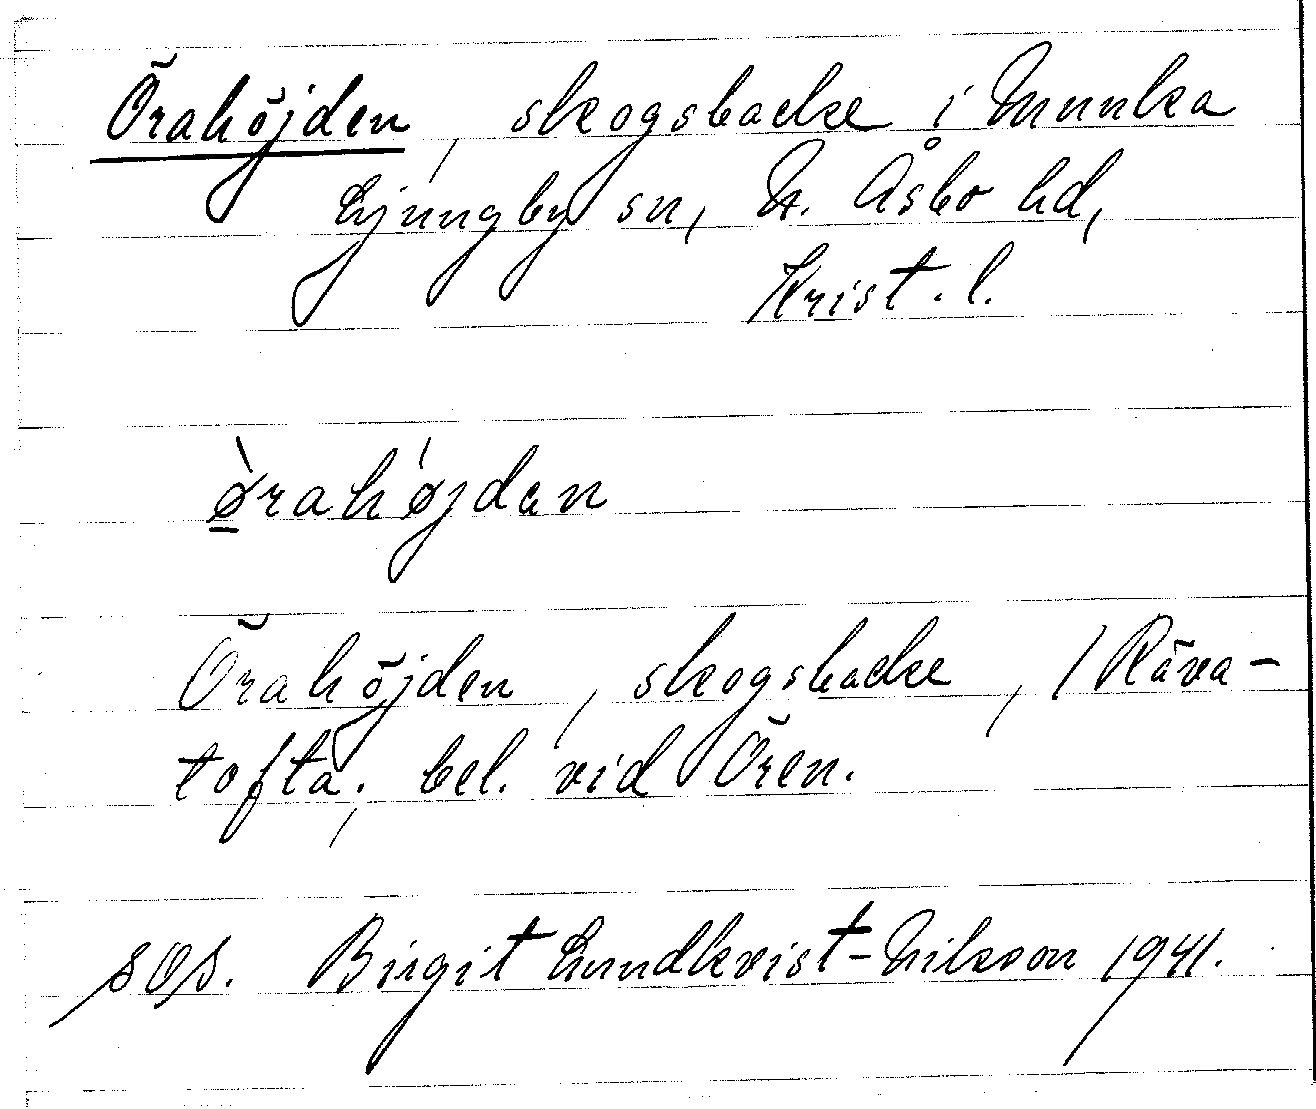 Örahöjden, skogsbacke i Munka
Ljungby sn, N. Åsbo hd,
Krist. l.
ø̀rahǿjdan
Örahöjden, skogsbacke, / Räva-
tofta; bel. vid Ören.
SOS. Birgit Lundkvist-Nilsson 1941.